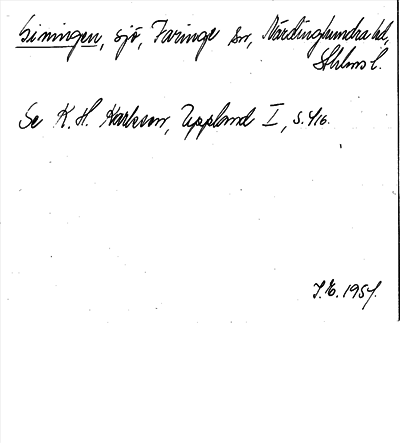 Siningen, sjö, Faringe sn, Närdinghundra hd,
Sthlms l.
Se K. H. Karlsson, Uppland I, s. 416.
J. E. 1957.